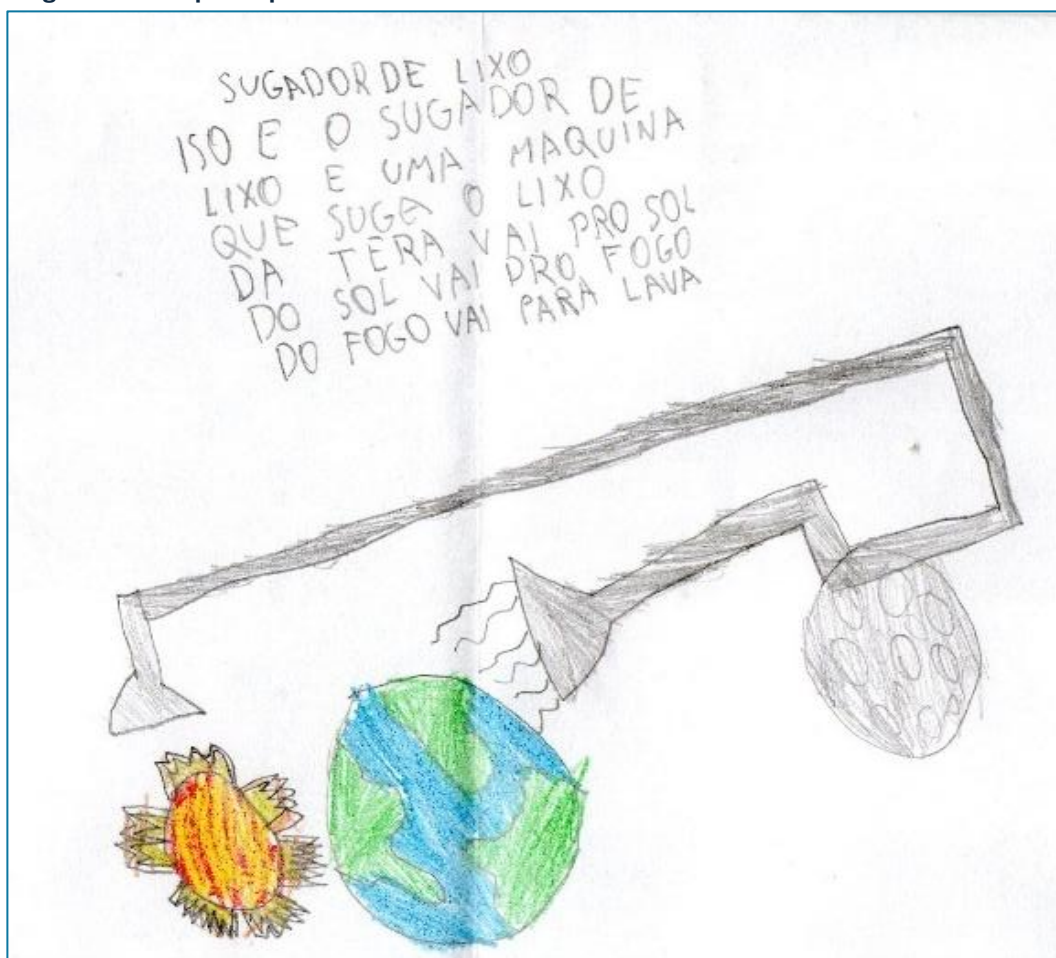 SUGADOR DE LIXO
ISO E O SUGADOR DE
LIXO E UMA MAQUINA
QUE SUGA O LIXO
DA TERA VAI PRO SOL
DO SOL VAI PRO FOGO
DO FOGO VAI PARA LAVA